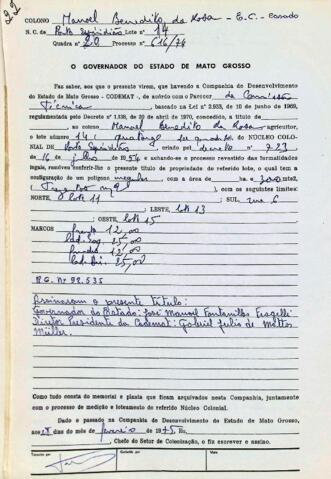 22
COLONO Manoel Benedito da Rosa - E.C. - Casado
N. C. de Porto Esperidião Lote n° 14
Quadra n° 20 Processo n° 616/74
O GOVERNADOR DO ESTADO DE MATO GROSSO
Faz saber, aos que a presente virem, que havendo a Companhia de Desenvolvimento
do Estado de Mato Grosso - CODEMAT -, de acordo com o Parecer da Comissão
Técnica, bascado na Lei n° 2.933, de 10 de junho de 1969,
regulamentada pelo Decreto n° 1.138, de 20 de abril de 1970, concedido a título
ao colono Manoel Benedito da Rosa agricultor,
o lote número 14 do NÚCLEO COLO-
NIAL DE Porto Esperidião criado pelo decreto n° 723
de 16 de julho 1954 e achando-se o processo revestido das formalidades
legais, resolveu conferir-lhe o presente título de propriedade do referido lote, o qual tem a
configuração de um polígono com a área de 300 m2,
(Trezentos m2), com os seguintes limites:
NORTE, lote 11 SUL, rua 6
LESTE, lote 13
OESTE, lote 15
MARCOS frente 12,00
25,00
12,00
25,00
R.G. Nº 92.535
Assinaram o presente título:
Governador do Estado: José Manoel Fontanillas Fragelli
Diretor Presidente da Codemat: Gabriel Julio de Mattos
Müller.
Como tudo consta do memorial e planta que ficam arquivados nesta Companhia, juntamente
com o processo de medição e loteamento do referido Núcleo Colonial.
Dado e passado na Companhia de Desenvolvimento do Estado de Mato Grosso,
aos 28 dias do mês de fevereiro de 1975. Eu,
, Chefe do Setor de Colonização, o fiz escrever e assino.